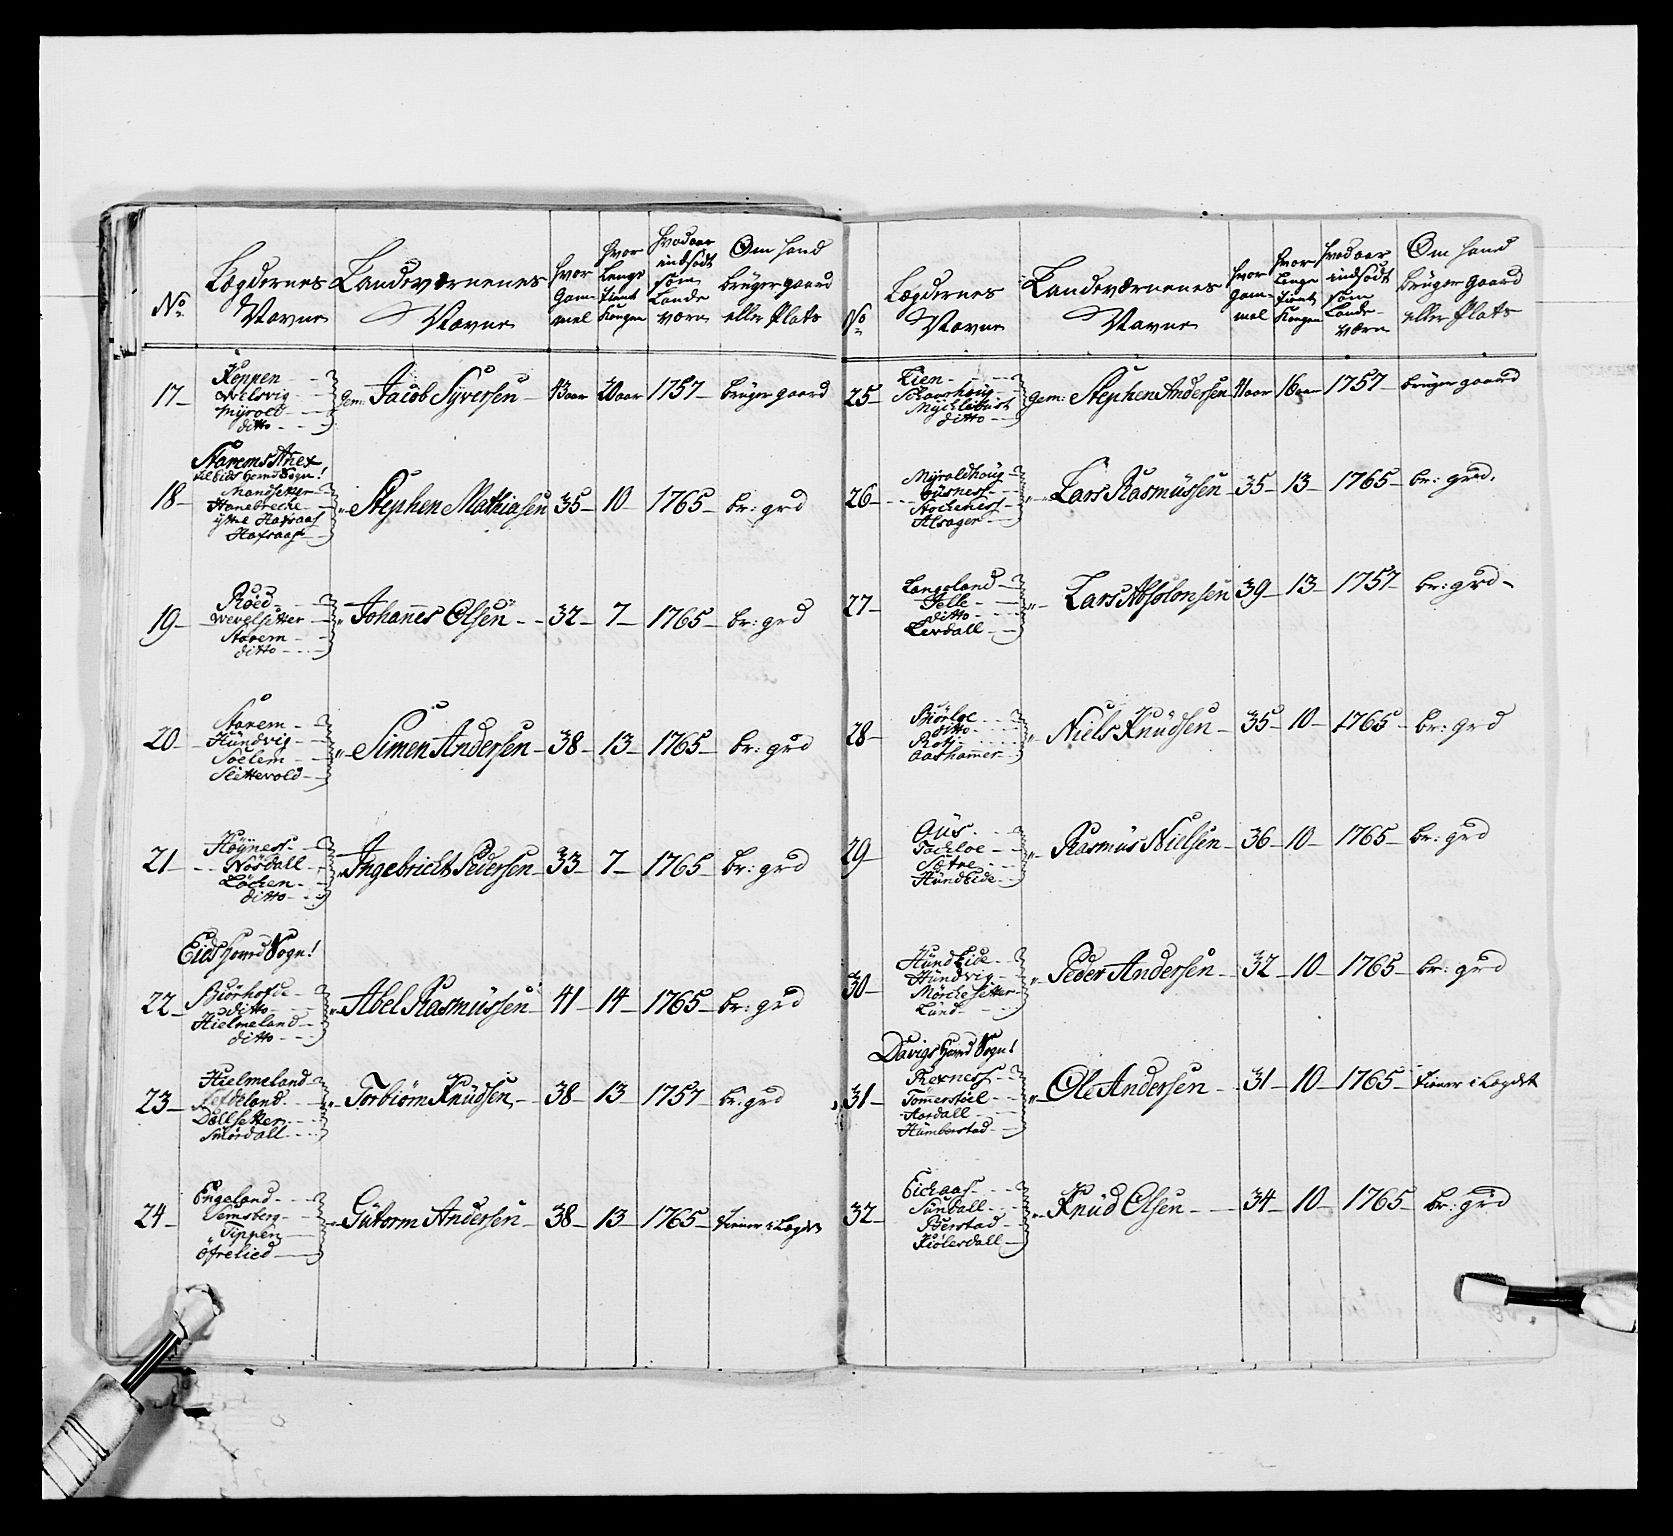 No
Lægdernes Navne
Landeværnenes Navne
hvor Gam- mel
hvor Lenge tient Kongen
hvad aar indsadt som Lande værn
Om hand bruger gaard eller Plats
17 –
Koppen
Welsvig
Myroed
ditto
Gem: Jacob Syversen – 43 aar 20 aar 1757 – bruger gaard
Starems Anex
til Eids Hoved Sogn!
18 –
Mandsetter
Hanebreche
ytre Hafraas
Hafraas
" Stephen Mathiasen 35 – 10 – 1765 – br: grd
19 –
Röed
Wevelsetter
Starem
ditto
" Johannes Olsen – 32 – 7 – 1765 – br: grd
20 –
Starem
Hundvig
Soelem
Slettevold
" Simen Andersen – 38 – 13 – 1765 – br: grd
21 –
Höyness
Nosdall
Löchen
ditto
" Ingebricht Pedersen – 33 – 7 – 1765 – br: grd
Eids Hoved Sogn!
22 –
Biörhofde
ditto
Hielmeland
ditto
" Abel Rasmussen 41 – 14 – 1765 – br: grd
23 –
Hielmeland
Dallsetter
Smördall
" Torbiörn Knudsen – 38 – 13 – 1757 – br: grd
24 –
Engeland
Semsberg
Tippen
Ofrelied
" Gutorm Andersen – 38 – 13 – 1765 – tiener i Lægdet
No
Lægdernes Navne
Landeværnenes Navne
hvor gam- mel
hvor Lenge tient Kongen
hvad aar indsadt som Lande- værn
Om hand bruger gaard eller Plats
25 –
Lien
Mychlebust
ditto
Gem: Stephen Andersen 41 aar 16 aar 1757 – bruger gaard
26 –
Myroldhoug
Gusness
Stochness
Alsager
" Lars Rasmussen – 35 – 13 – 1765 – br: grd.
27 –
Langeland
Felle
ditto
Levdall
" Lars Absolonsen 39 – 13 – 1757 – br: grd –
28 –
Biörloe
ditto
Roti
Aashammer
" Niels Knudsen – 35 – 10 – 1765 – br: grd
29 –
Aus
Tochloe
Sætre
Hundeide
" Rasmus Nielsen – 36 – 10 – 1765 – br: grd
30 –
Hundeide
Hundvig
Mörchesetter
Lund
" Peder Andersen – 32 – 10 – 1765 – br: grd
Davigs Hoved Sogn!
31 –
Rexness
Tömerstöel
Aardall
Humberstad
" Ole Andersen – 31 – 10 – 1765 – tiener i Lægdet
32 –
Eichaas
Sundall
Berstad
Kiölesdall
" Knud Olsen – 34 – 10 – 1765 – br: grd